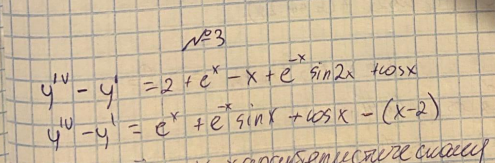 №3
y^IV - y' = 2 + e^x - x + e^-x sin2x + cosx
y^IV - y' = e^x + e^-x sinx + cosx - (x-2)